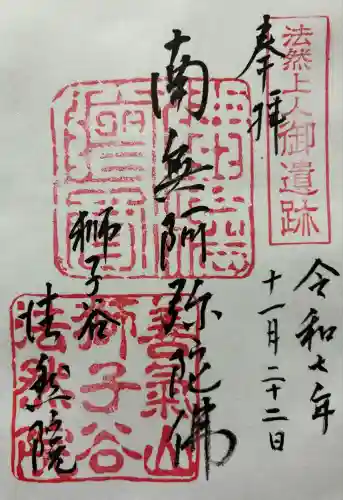 法然上人御遺跡
奉拝
令和七年
十一月二十二日
南無阿弥陀佛
獅子谷
法然院
善氣山
獅子谷
法然院